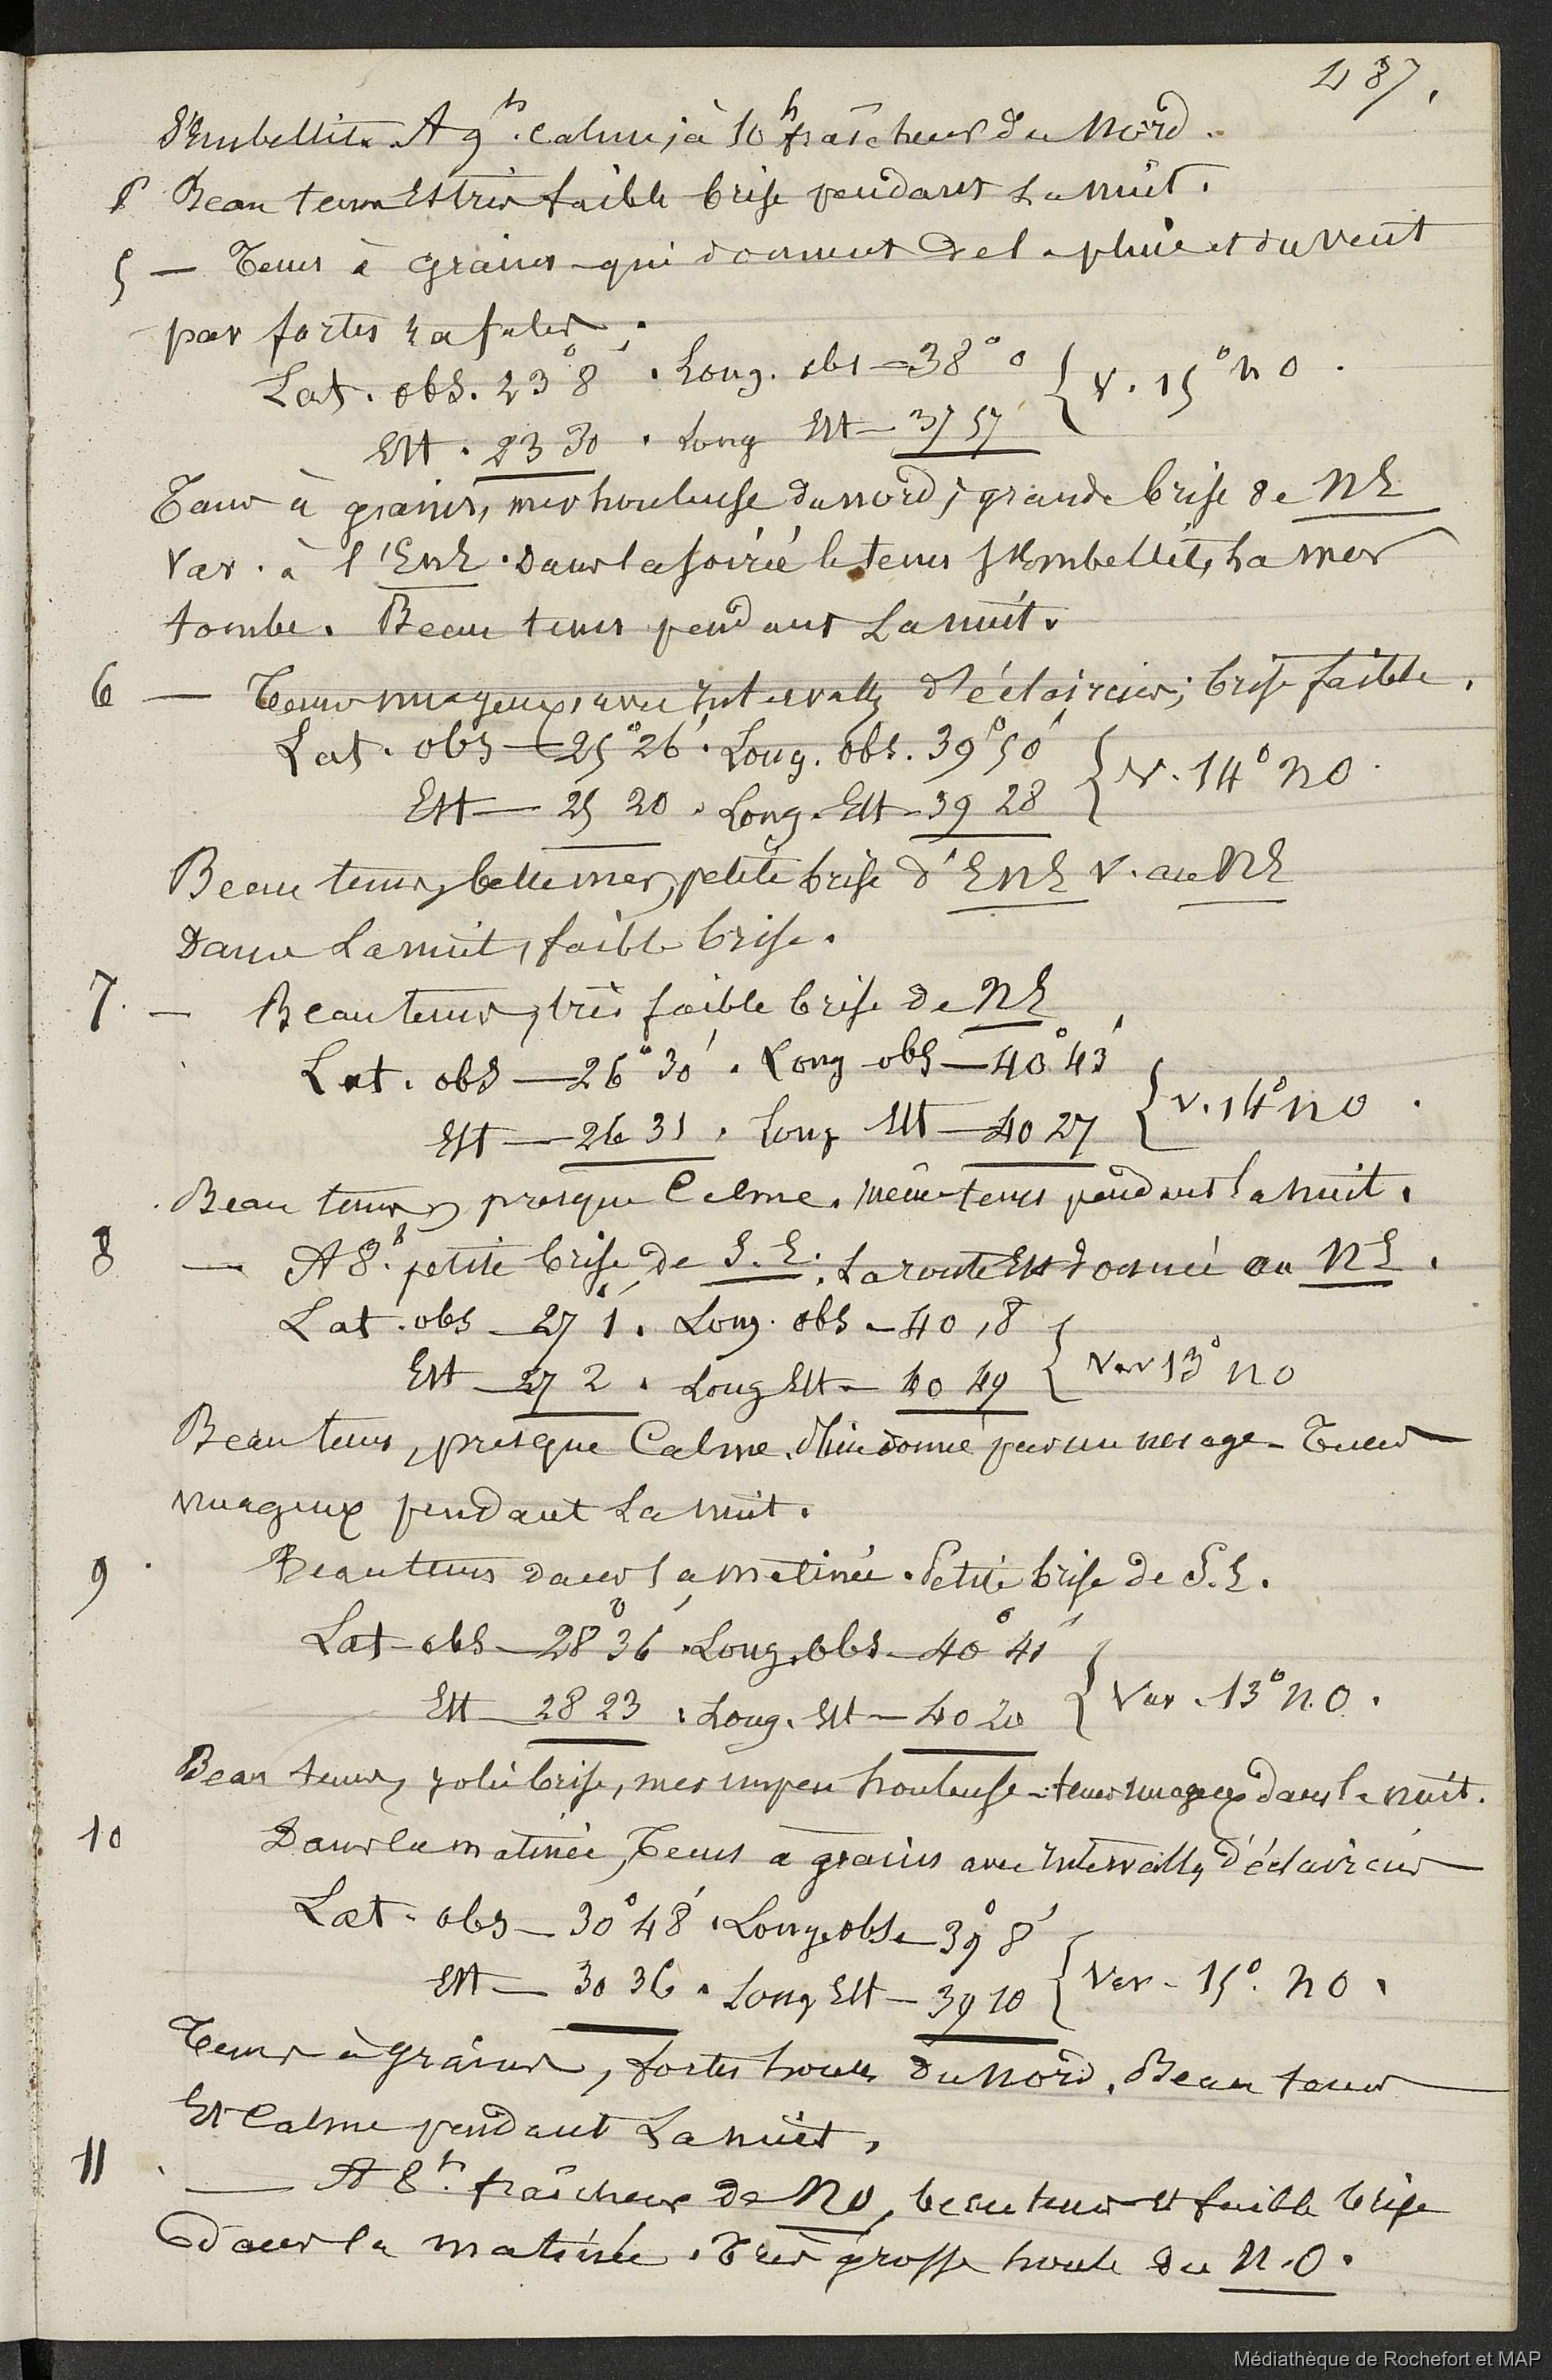 487.
S'Embellit. A 9h. calme; à 10h fraîcheur du Nord.
Beau tems Et très faible brise pendant La nuit.
5 — Tems à grains qui donnent de la pluie et du vent
par fortes rafales;
Lat. obs. 23° 8'. Long. obs — 38° 0 { V. 15° NO.
Est. 23 30. Long Est — 37 57
Tems à grains, mer houleuse du nord; grande brise de NE
Var. à l'ENE. Dans la soirée le tems s'Embellit, La mer
tombe. Beau tems pendant La nuit.
6 — Tems nuageux, avec Intervalles d'éclaircies; brise faible.
Lat. obs — 25° 26'. Long. obs. 39° 50' { V. 14° NO.
Est — 25 20. Long. Est — 39 28
Beau tems, belle mer, petite brise d'ENE V. au NE
Dans La nuit, faible brise.
7. — Beau tems, très faible brise de NE
Lat. obs — 26° 30'. Long obs — 40° 43' { V. 14° NO.
Est — 26 31. Long Est — 40 27
Beau tems, presque Calme. même tems pendant la nuit.
8 — A 8h. petite brise de S.E. La route Est donnée au NE.
Lat. obs — 27° 1'. Long. obs — 40, 8 { Var 13° NO
Est — 27 2. Long Est — 40 49
Beau tems, presque Calme. donné par un Tems
nuageux pendant La nuit.
9. Beau tems dans la matinée. Petite brise de S.E.
Lat obs — 28° 36'. Long. obs — 40° 41' { Var. 13° N.O.
Est — 28 23. Long. Est — 40 20
Beau tems, jolie brise, mer un peu houleuse — tems nuageux dans la nuit.
10 Dans la matinée, Tems à grains avec Intervalles d'éclaircies
Lat. obs — 30° 48'. Long. obs — 39° 8' { Var — 15°. NO.
Est — 30 36. Long Est — 39 10
Tems à grains, fortes houles du Nord. Beau tems
Et Calme pendant La nuit.
11 — A 8h. fraîcheur de NO, beau tems et faible brise
dans la matinée. Très grosse houle du N.O.
Médiathèque de Rochefort et MAP